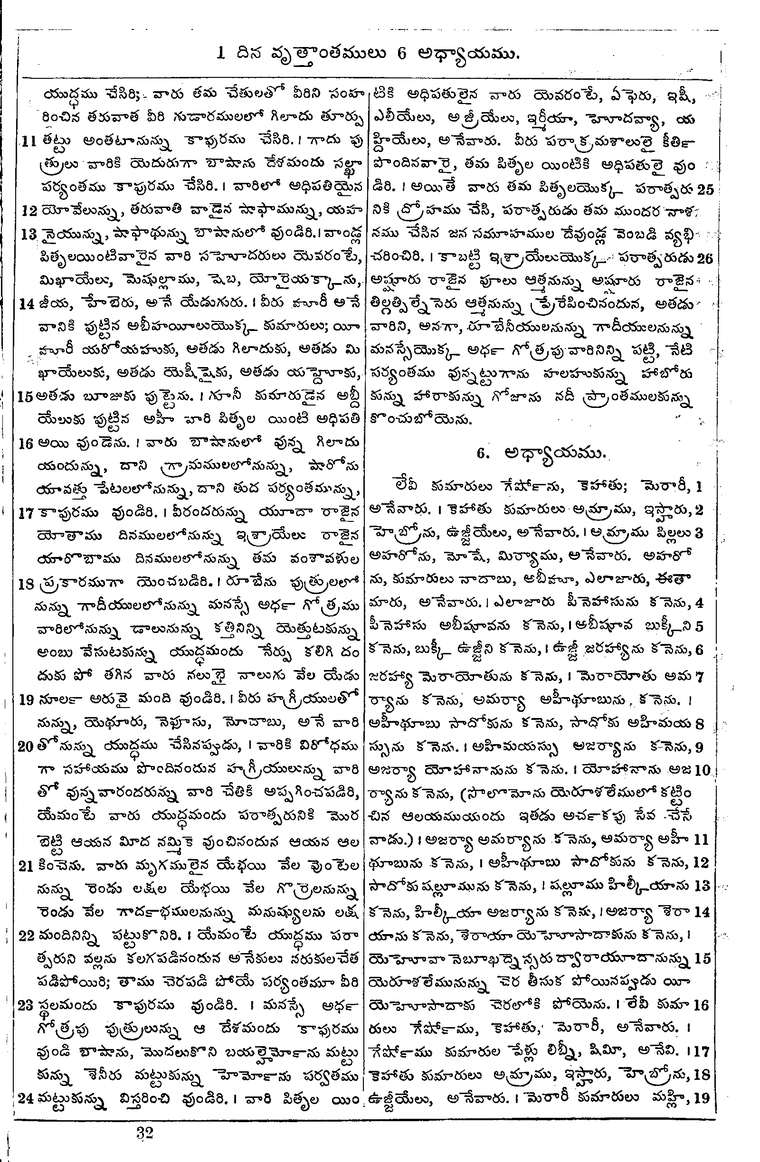 1 దిన వృత్తాంతములు 6 అధ్యాయము.
యుద్ధము చేసిరి; వారు తమ చేతులతో వీరిని సంహ
రించిన తరువాత వీరి గుడారములలో గిలాదు తూర్పు
11 తట్టు అంతటానున్ను కాపురము చేసిరి. । గాదు పు
త్రులు వారికి యెదురుగా బాషాను దేశమందు సల్ఖా
పర్యంతము కాపురము చేసిరి. । వారిలో అధిపతియైన
12 యోవేలున్ను, తరువాతి వాడైన షాఫామున్ను, యహ
13 నైయున్ను, షాఫాథున్ను బాషానులో వుండిరి. । వాండ్ల
పితృలయింటివారైన వారి సహోదరులు యెవరంటే,
మిఖాయేలు, మెషుల్లాము, షెబ, యోరైయక్కాను,
14 జీయ, హేబెరు, అనే యేడుగురు. । వీరు హూరీ అనే
వానికి పుట్టిన అబీహయిలుయొక్క కుమారులు; యీ
హూరీ యరోయహుకు, అతడు గిలాదుకు, అతడు మి
ఖాయేలుకు, అతడు యెషీషైకు, అతడు యహ్దోకు,
15 అతడు బూజుకు పుట్టెను. । గూనీ కుమారుడైన అబ్దీ
యేలుకు పుట్టిన అహీ వారి పితృల యింటి అధిపతి
16 అయి వుండెను. । వారు బాషానులో వున్న గిలాదు
యందున్ను, దాని గ్రామములలోనున్ను, షారోను
యావత్తు పేటలలోనున్ను, దాని తుద పర్యంతమున్ను,
17 కాపురము వుండిరి. । వీరందరున్ను యూదా రాజైన
యోతాము దినములలోనున్ను ఇశ్రాయేలు రాజైన
యారొబాము దినములలోనున్ను తమ వంశావళుల
18 ప్రకారముగా యెంచబడిరి. । రూబేను పుత్రులలో
నున్ను గాదీయులలోనున్ను మనస్సే అర్ధ గోత్రము
వారిలోనున్ను డాలునున్ను కత్తినిన్ని యెత్తుటకున్ను
అంబు వేసుటకున్ను యుద్ధమందు నేర్పు కలిగి దం
దుకు పో తగిన వారు నలుభై నాలుగు వేల యేడు
19 నూర్ల అరువై మంది వుండిరి. । వీరు హగ్రీయులతో
నున్ను, యెథూరు, నెఫూసు, నోదాబు, అనే వారి
20 తోనున్ను యుద్ధము చేసినప్పుడు, । వారికి విరోధము
గా సహాయము పొందినందున హగ్రీయులున్ను వారి
తో వున్నవారందరున్ను వారి చేతికి అప్పగించపడిరి,
యేమంటే వారు యుద్ధమందు పరాత్పరునికి మొర
బెట్టి ఆయన మీద నమ్మికె వుంచినందున ఆయన ఆల
21 కించెను. వారు మృగములైన యేభయి వేల వుంటెల
నున్ను రెండు లక్షల యేభయి వేల గొర్రెలనున్ను
రెండు వేల గార్దభములనున్ను మనుష్యులను లక్ష
22 మందినిన్ని పట్టుకొనిరి. । యేమంటే యుద్ధము పరా
త్పరుని వల్లను కలగపడినందున అనేకులు నరుకులచేత
పడిపోయిరి; తాము చెరపడి పోయే పర్యంతమూ వీరి
23 స్థలమందు కాపురము వుండిరి. । మనస్సే అర్ధ
గోత్రపు పుత్రులున్ను ఆ దేశమందు కాపురము
వుండి బాషాను, మొదలుకొని బయల్హెర్మోను మట్టు
కున్ను శెనీరు మట్టుకున్ను హెర్మోను పర్వతము
24 మట్టుకున్ను విస్తరించి వుండిరి. । వారి పితృల యిం
టికి అధిపతులైన వారు యెవరంటే, ఏఫెరు, ఇషీ,
ఎలీయేలు, అజ్రీయేలు, ఇర్మీయా, హోదవ్యా, య
హ్దియేలు, అనేవారు. వీరు పరాక్రమశాలులై కీర్తి
పొందినవారై, తమ పితృల యింటికి అధిపతులై వుం
డిరి. । అయితే వారు తమ పితృలయొక్క పరాత్పరు 25
నికి ద్రోహము చేసి, పరాత్పరుడు తమ ముందర నాశ
నము చేసిన జన సమూహముల దేవుండ్ల వెంబడి వ్యభి
చరించిరి. । కాబట్టి ఇశ్రాయేలుయొక్క పరాత్పరుడు 26
అష్షూరు రాజైన పూలు ఆత్మనున్ను అష్షూరు రాజైన
తిల్గత్పిల్నేసెరు ఆత్మనున్ను ప్రేరేపించినందున, అతడు
వారిని, అనగా, రూబేనీయులనున్ను గాదీయులనున్ను
మనస్సేయొక్క అర్ధ గోత్రపు వారినిన్ని పట్టి, నేటి
పర్యంతము వున్నట్టుగాను హలహుకున్ను హాబోరు
కున్ను హారాకున్ను గోజాను నదీ ప్రాంతములకున్ను
కొంచుబోయెను.
6. అధ్యాయము.
లేవీ కుమారులు గేర్షోను, కెహాతు; మెరారీ, 1
అనేవారు. । కెహాతు కుమారులు అమ్రాము, ఇస్హారు, 2
హెబ్రోను, ఉజ్జీయేలు, అనేవారు. । అమ్రాము పిల్లలు 3
అహరోను, మోషే, మిర్యాము, అనేవారు. అహరో
ను, కుమారులు నాదాబు, అబీహూ, ఎలాజారు, ఈతా
మారు, అనేవారు. । ఎలాజారు పీనెహాసును కనెను, 4
పీనెహాసు అబీషూవను కనెను, । అబీషూవ బుక్కీని 5
కనెను, బుక్కీ ఉజ్జీని కనెను, । ఉజ్జీ జరహ్యాను కనెను, 6
జరహ్యా మెరాయోతును కనెను, । మెరాయోతు అమ 7
ర్యాను కనెను, అమర్యా అహీథూబును కనెను. ।
అహీథూబు సాదోకును కనెను, సాదోకు అహిమయ 8
స్సును కనెను. । అహిమయస్సు అజర్యాను కనెను, 9
అజర్యా యోహానానును కనెను. । యోహానాను అజ 10
ర్యాను కనెను, (సొలొమోను యెరూశలేములో కట్టిం
చిన ఆలయముయందు ఇతడు అర్చకపు సేవ చేసే
వాడు.) । అజర్యా అమర్యాను కనెను, అమర్యా అహీ 11
థూబును కనెను, । అహీథూబు సాదోకును కనెను, 12
సాదోకు షల్లూమును కనెను, । షల్లూము హిల్కీయాను 13
కనెను, హిల్కీయా అజర్యాను కనెను, । అజర్యా శెరా 14
యాను కనెను, శెరాయా యెహోసాదాకును కనెను, ।
యెహోవా నెబూఖద్నెస్సరు ద్వారా యూదానున్ను 15
యెరూశలేమునున్ను చెర తీసుక పోయినప్పుడు యీ
యెహోసాదాకు చెరలోకి పోయెను. । లేవీ కుమా 16
రులు గేర్షోము, కెహాతు, మెరారీ, అనేవారు. ।
గేర్షోము కుమారుల పేర్లు లిబ్నీ, షిమీ, అనేవి. । 17
కెహాతు కుమారులు అమ్రాము, ఇస్హారు, హెబ్రోను, 18
ఉజ్జీయేలు, అనేవారు. । మెరారీ కుమారులు మహ్లి, 19
32